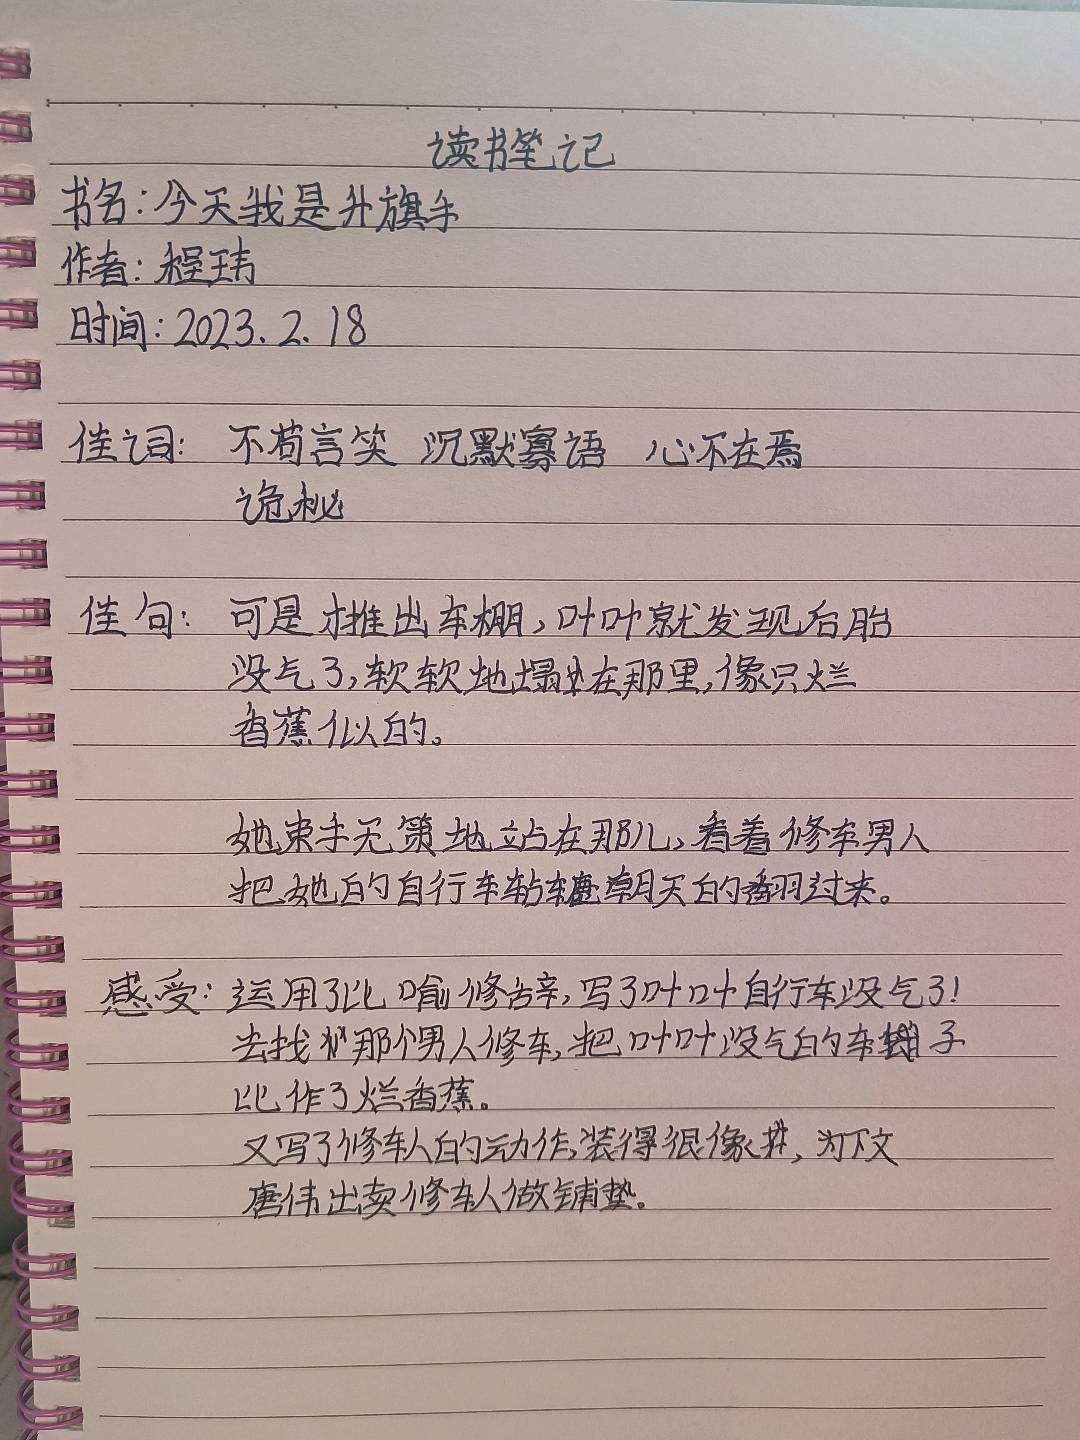 读书笔记
书名：今天我是升旗手
作者：程玮
时间：2023.2.18
佳词：不苟言笑 沉默寡语 心不在焉
诡秘
佳句：可是才推出车棚，叶叶就发现后胎
没气了，软软地塌在那里，像只烂
香蕉似的。
她束手无策地站在那儿，看着修车男人
把她的自行车轱辘朝天的翻过来。
感受：运用了比喻修辞，写了叶叶自行车没气了！
去找那个男人修车，把叶叶没气的车子
比作了烂香蕉。
又写了修车人的动作，装得很像，为下文
唐伟出卖修车人做铺垫。